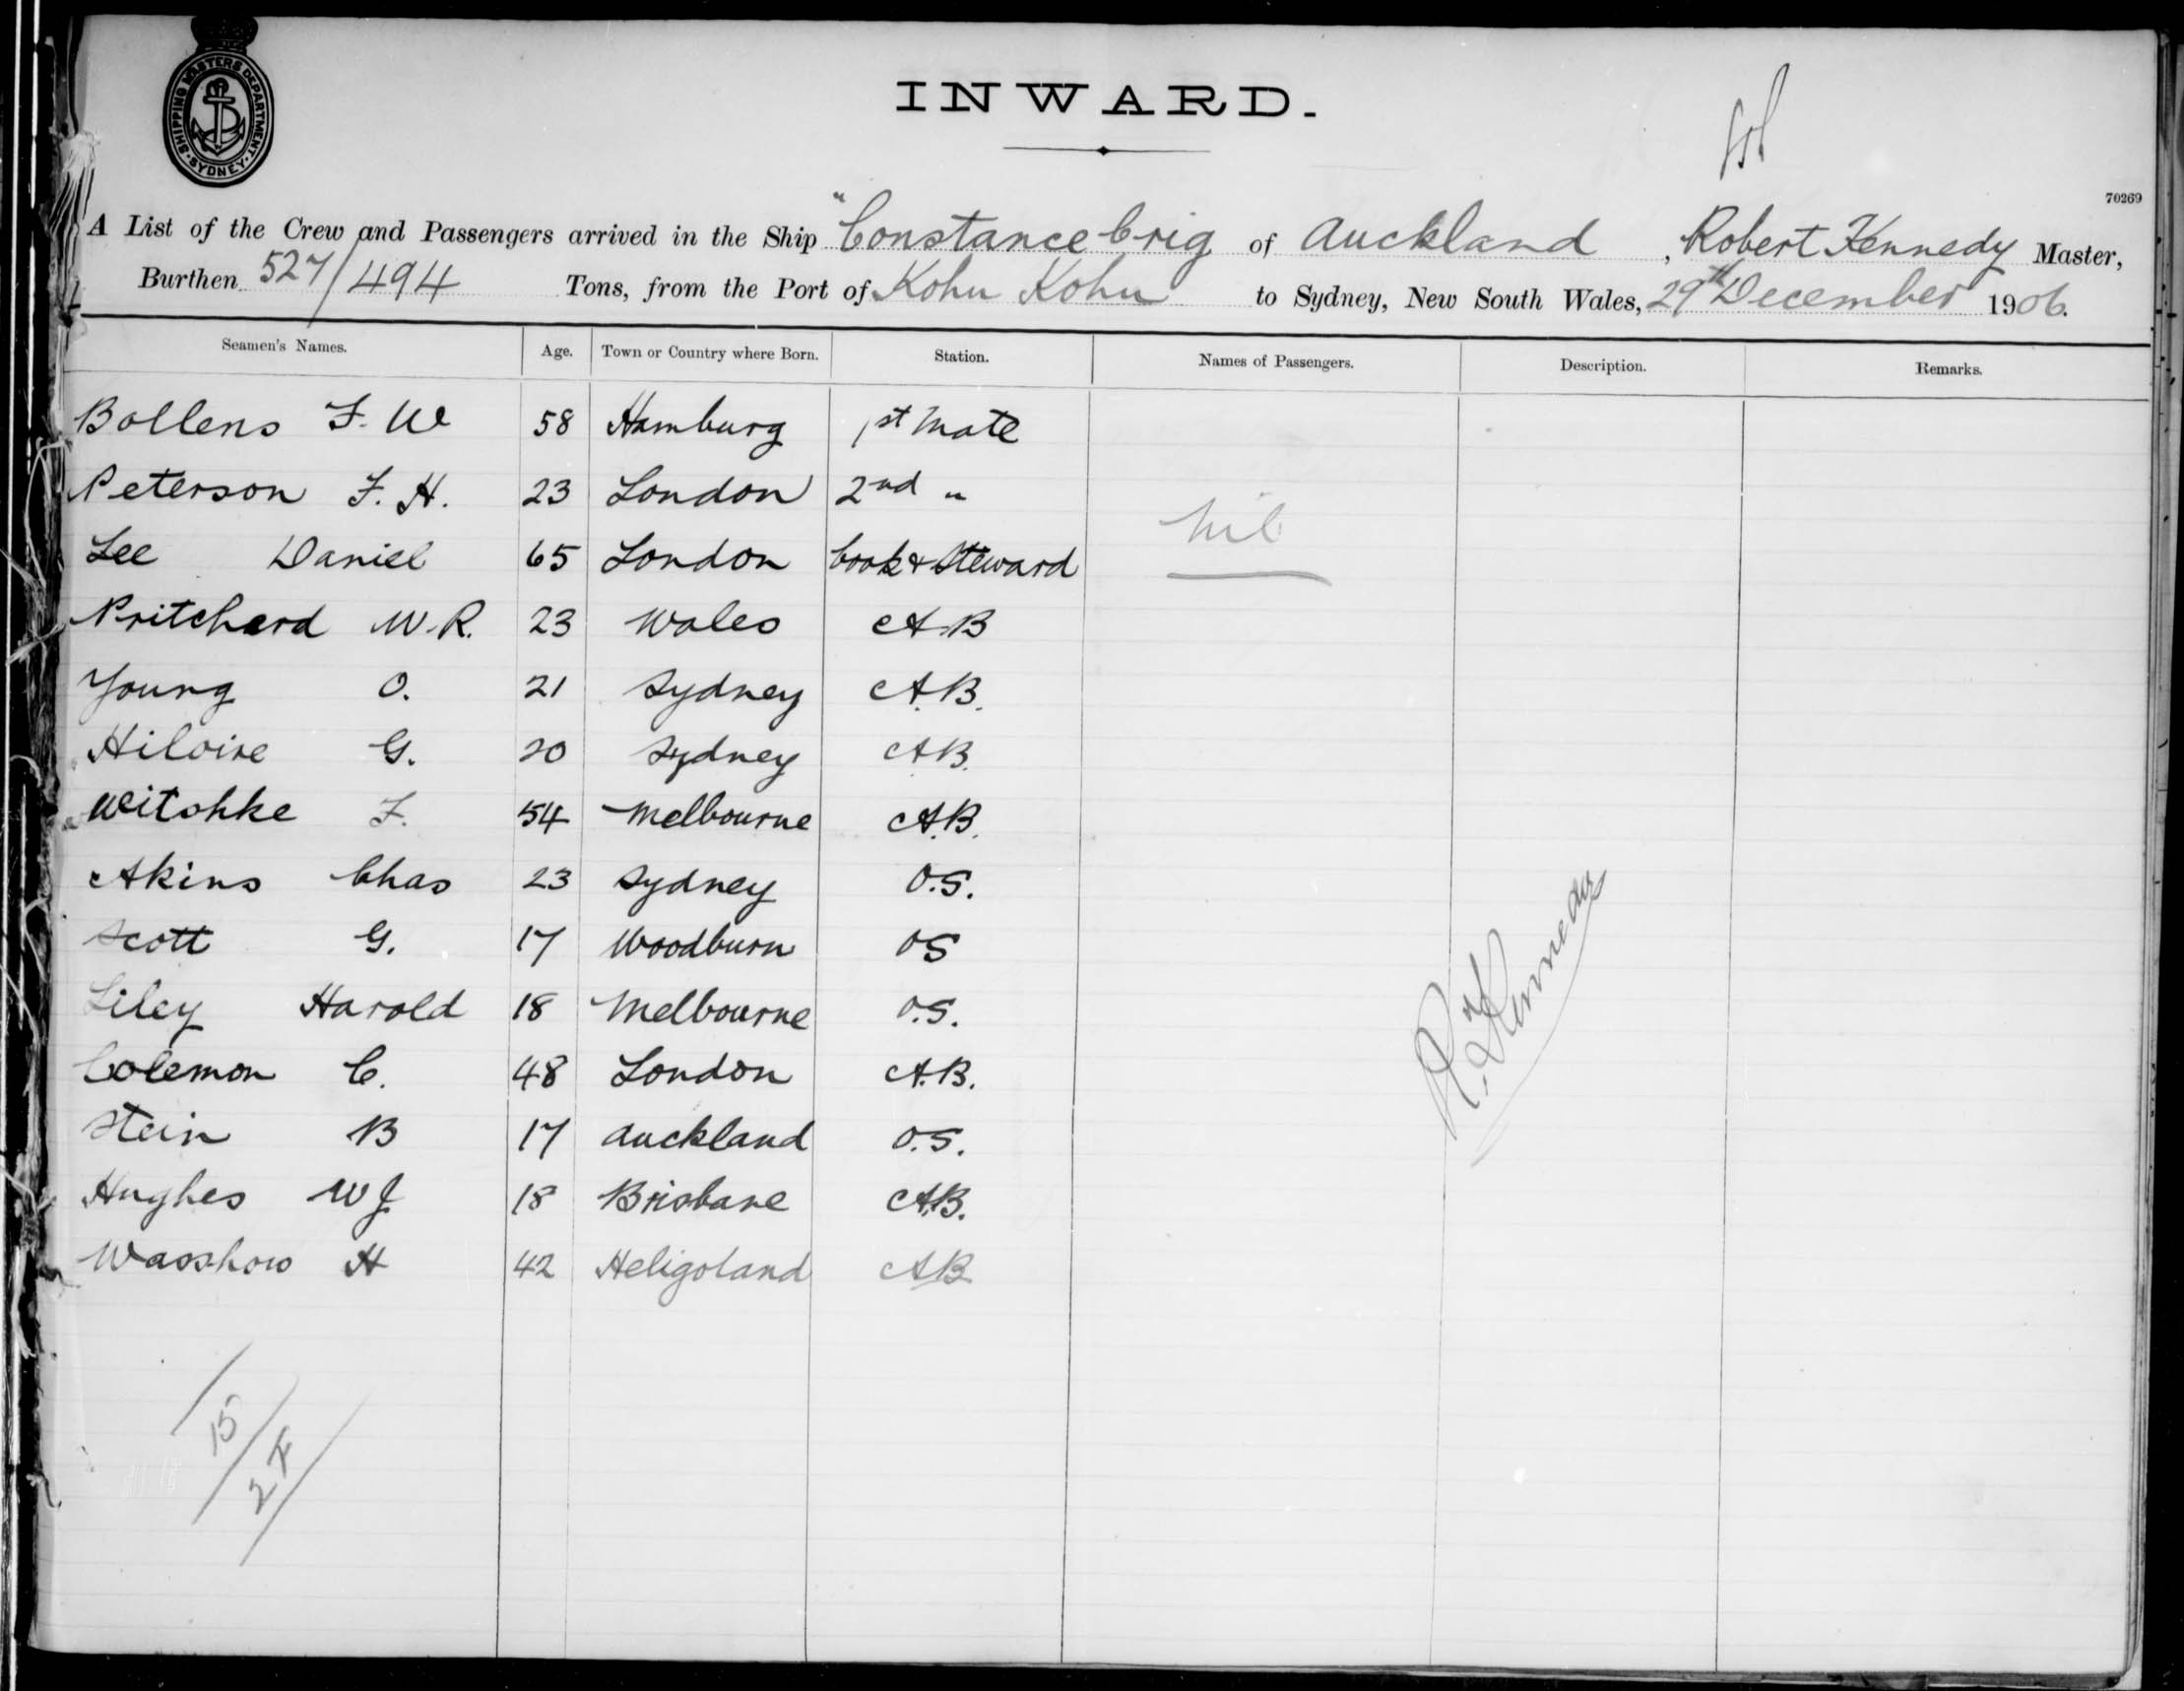 SHIPPING MASTERS DEPARTMENT
SYDNEY
INWARD.
70269
A List of the Crew and Passengers arrived in the Ship "Constance Crig of Auckland, Robert Kennedy Master,
Burthen 527/494 Tons, from the Port of Kohu Kohu to Sydney, New South Wales, 29th December 1906.
Seamen's Names. Age. Town or Country where Born. Station. Names of Passengers. Description. Remarks.
Bollens F. W 58 Hamburg 1st Mate
Peterson F. H. 23 London 2nd "
Nil
Lee Daniel 65 London Cook & Steward
Pritchard W. R. 23 Wales A.B
Young O. 21 Sydney A.B.
Hiloire G. 20 Sydney AB.
Witshke F. 54 Melbourne A.B.
Akins Chas 23 Sydney O.S.
Scott G. 17 Woodburn OS
Liley Harold 18 Melbourne O.S.
Colemon C. 48 London A.B.
Stein B 17 Auckland O.S.
Hughes W J 18 Brisbane A.B.
Wasshow H 42 Heligoland AB
R. Kennedy
15
2 F